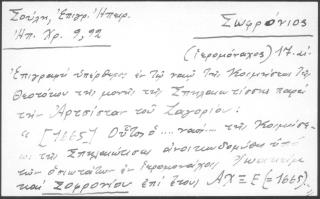 Σούλη, Ἐπιγρ. Ἠπειρ.
Ἠπ. Χρ. 9, 92
Σωφρόνιος
(ἱερομόναχος) 17. αἰ.
Ἐπιγραφὴ ὑπέρθυρος ἐν τῷ ναῷ τῆς Κοιμήσεως τῆς
Θεοτόκου τῆς μονῆς τῆς Σπηλαιωτίσσης παρὰ
τὴν Ἀρτσίσταν τοῦ Ζαγορίου:
"[1665] Οὗτος ὁ .... ναὸς .... τῆς Κοιμήσε-
ως τῆς Σπηλαιωτίσας ἀνοικοδομήθη ὑπὸ
τῶν ὁσιωτάτων ἐν ἱερομονάχοις Ἰωακεὶμ
καὶ Σοφρονίου ἐπὶ ἔτους ΑΧΞΕ (=1665).